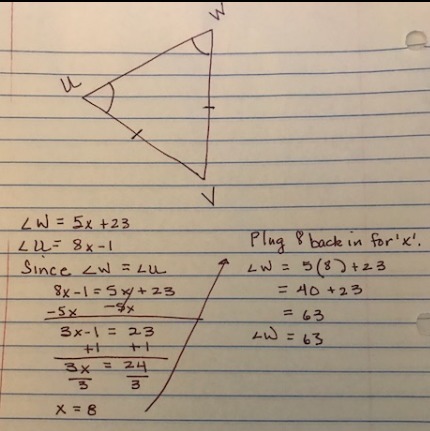 W
U
V
∠W = 5x + 23
∠U = 8x - 1
Since ∠W = ∠U
8x - 1 = 5x + 23
-5x -5x
3x - 1 = 23
+1 +1
3x = 24
3 3
x = 8
Plug 8 back in for 'x'.
∠W = 5(8) + 23
= 40 + 23
= 63
∠W = 63